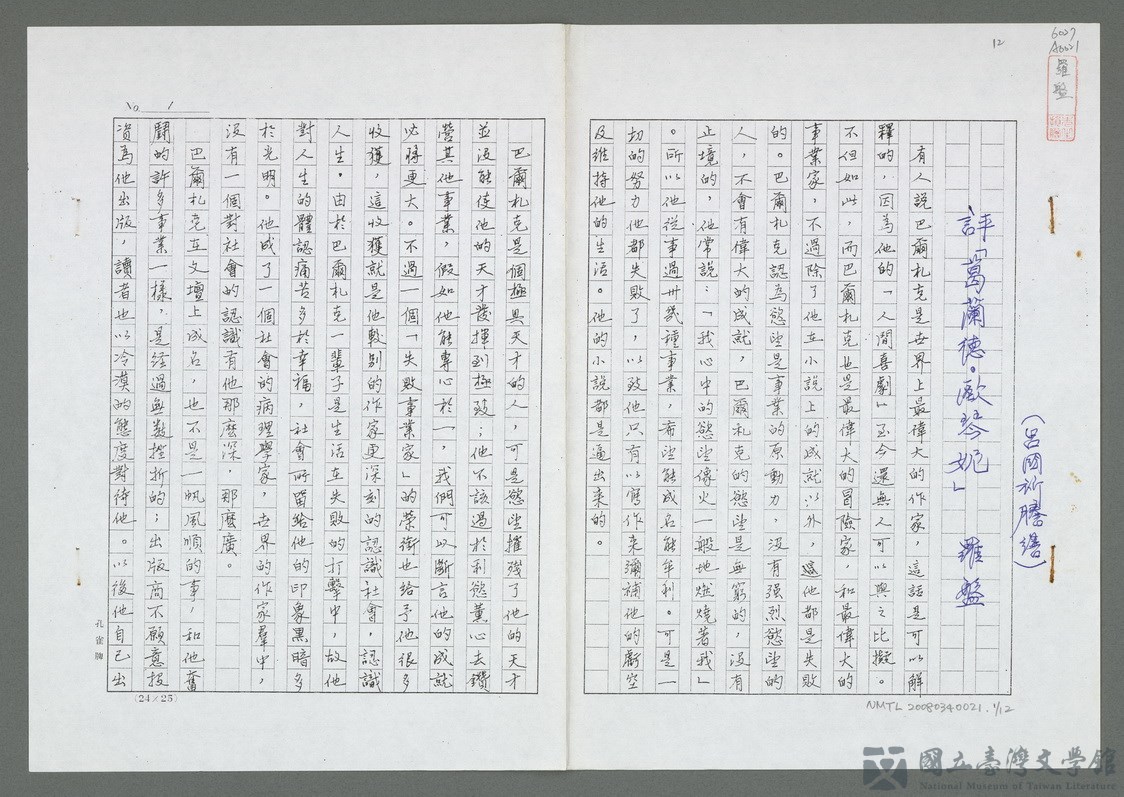 6027
A0021
羅盤
12
(呂國祈謄繕)
評「葛蘭德·歐琴妮」 羅盤
有人說巴爾札克是世界上最偉大的作家，這話是可以解
釋的，因為他的「人間喜劇」至今還無人可以與之比擬。
不但如此，而巴爾札克也是最偉大的冒險家，和最偉大的
事業家，不過除了他在小說上的成就以外，其他都是失敗
的。巴爾札克認為慾望是事業的原動力，沒有强烈慾望的
人，不會有偉大的成就，巴爾札克的慾望是無窮的，沒有
止境的，他常說：「我心中的慾望像火一般地燃燒著我」
。所以他從事過卅幾種事業，希望能成名能牟利。可是一
切的努力他都失敗了，以致他只有以寫作來彌補他的虧空
及維持他的生活。他的小說都是逼出來的。
巴爾札克是個極具天才的人，可是慾望摧殘了他的天才
並沒能使他的天才發揮到極致；他不該過於利慾薰心去鑽
營其他事業，假如他能專心於一，我們可以斷言他的成就
必將更大。不過一個「失敗事業家」的榮銜也給予他很多
收獲，這收獲就是他較別的作家更深刻的認識社會，認識
人生。由於巴爾札克一輩子是生活在失敗的打擊中，故他
對人生的體認痛苦多於幸福，社會所留給他的印象黑暗多
於光明。他成了一個社會的病理學家，世界的作家羣中，
沒有一個對社會的認識有他那麼深，那麼廣。
巴爾札克在文壇上成名，也不是一帆風順的事，和他奮
鬪的許多事業一樣，是經過無數挫折的；出版商不願意投
資為他出版，讀者也以冷漠的態度對待他。以後他自己出
No. 1
孔雀牌
(24×25)
NMTL 20080340021.1/12
國立臺灣文學館
National Museum of Taiwan Literature